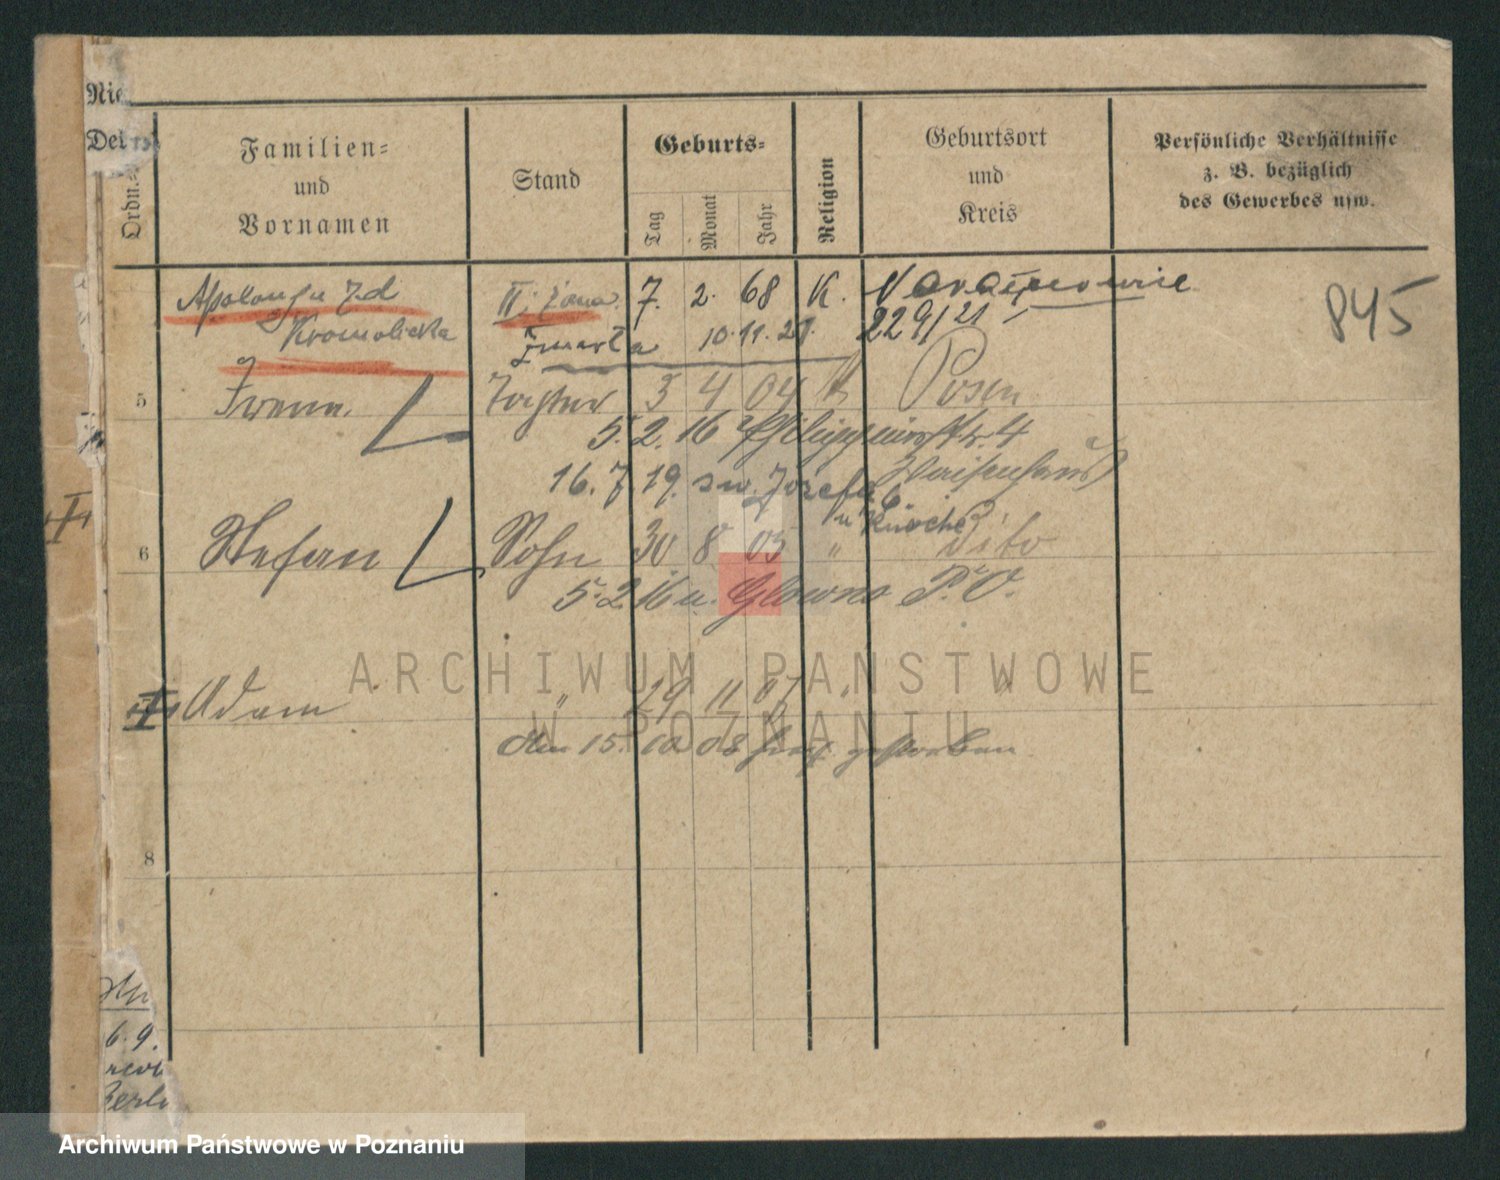 Nie
Dei
Ordn.=
Familien=
und
Vornamen
Stand
Geburts=
Tag
Monat
Jahr
Religion
Geburtsort
und
Kreis
Persönliche Verhältnisse
z. B. bezüglich
des Gewerbes usw.
II. żona 7. 2. 68 K.
Kromolicka
229/21
845
zmarła 10.11.27.
5 Irena Tochter 3 4 04 k Posen
5.2.16 str. 4
16.7.19. św. Józefa 6 Waisenhaus
u
I
6 Stefan Sohn 30 8 05 " Dito
5.2.16 u. Glowno P.O.
I Adam " 29 11 07 "
den 15.10.08 hier gestorben
8
6.9.
Berli
ARCHIWUM PAŃSTWOWE
W POZNANIU
Archiwum Państwowe w Poznaniu